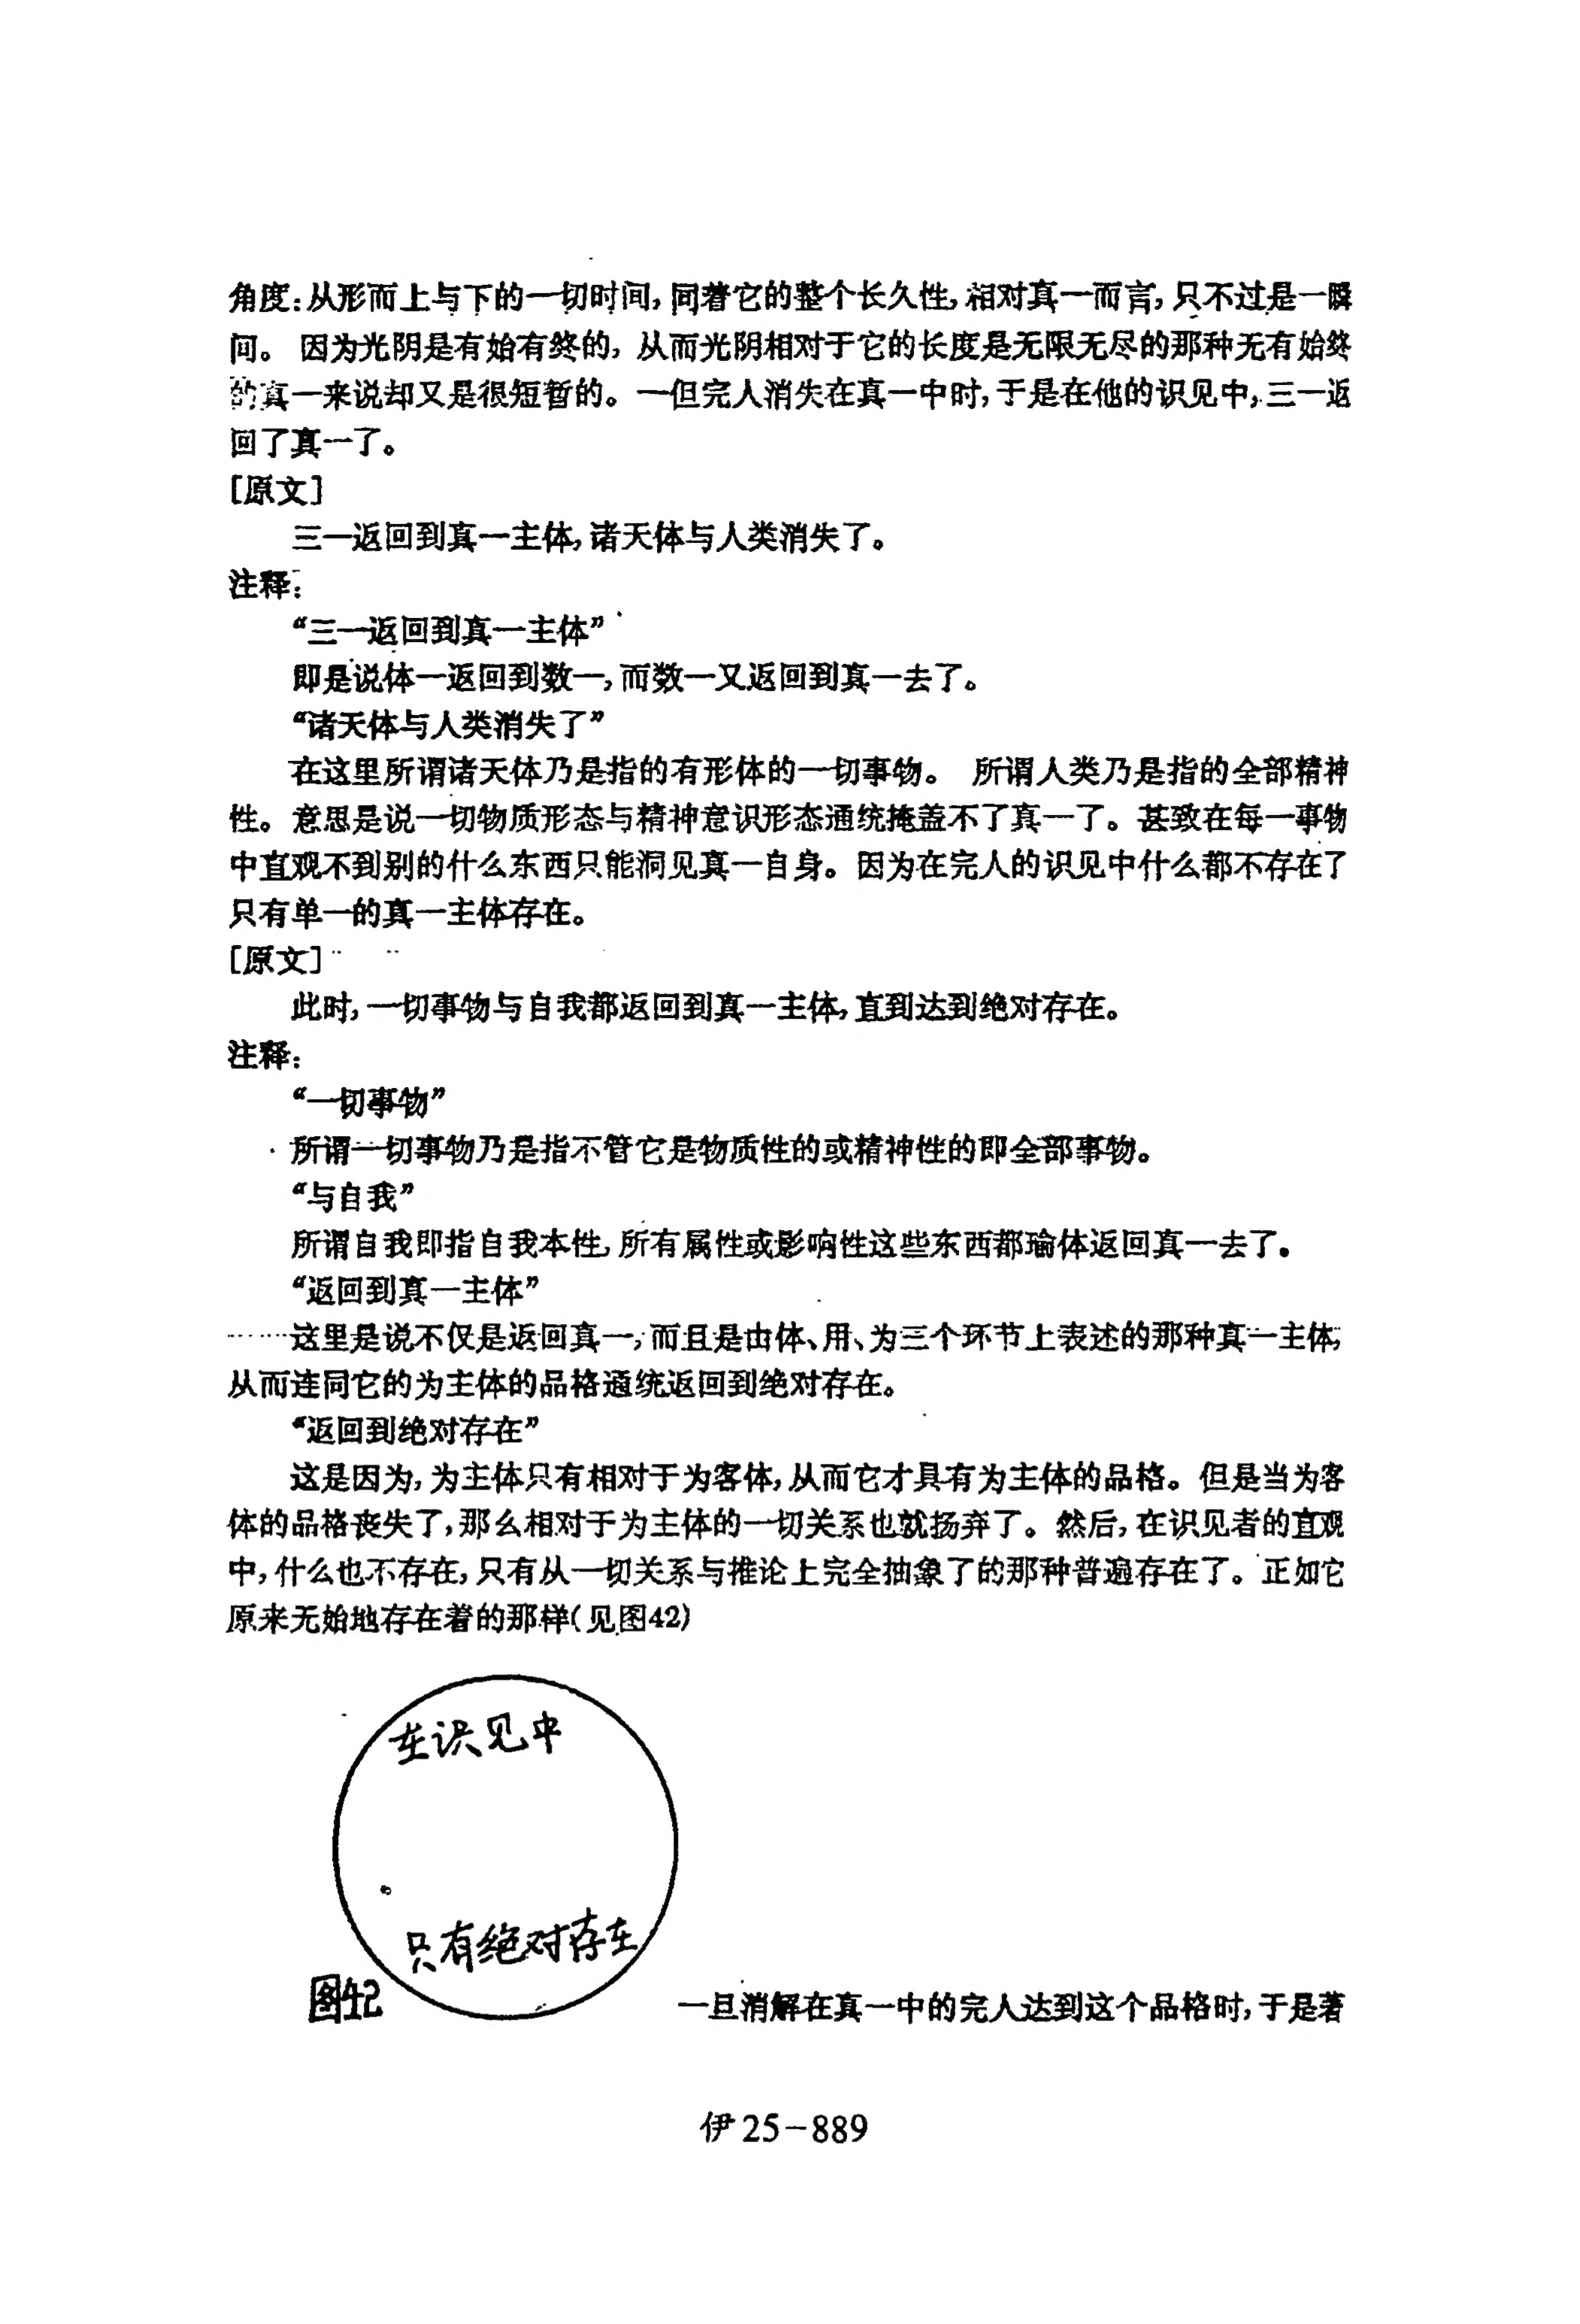 角度:从形而上与下的一切时间,同着它的整个长久性,相对真一而言,只不过是一瞬
间。 因为光阴是有始有终的, 从而光阴相对于它的长度是无限无尽的那种无有始终
的真一来说却又是很短暂的。一但完人消失在真一中时,于是在他的识见中,三一返
回了真一了。
[原文]
三一返回到真一主体,诸天体与人类消失了。
注释:
“三一返回到真一主体”
即是说体一返回到数一,而数一又返回到真一去了。
“诸天体与人类消失了”
在这里所谓诸天体乃是指的有形体的一切事物。 所谓人类乃是指的全部精神
性。意思是说一切物质形态与精神意识形态通统掩盖不了真一了。甚致在每一事物
中直观不到别的什么东西只能洞见真一自身。因为在完人的识见中什么都不存在了
只有单一的真一主体存在。
[原文]
此时,一切事物与自我都返回到真一主体,直到达到绝对存在。
注释:
“一切事物”
所谓一切事物乃是指不管它是物质性的或精神性的即全部事物。
“与自我”
所谓自我即指自我本性,所有属性或影响性这些东西都瑜体返回真一去了。
“返回到真一主体”
这里是说不仅是返回真一,而且是由体、用、为三个环节上表述的那种真一主体,
从而连同它的为主体的品格通统返回到绝对存在。
“返回到绝对存在”
这是因为,为主体只有相对于为客体,从而它才具有为主体的品格。但是当为客
体的品格丧失了,那么相对于为主体的一切关系也就扬弃了。然后,在识见者的直观
中,什么也不存在,只有从一切关系与推论上完全抽象了的那种普遍存在了。正如它
原来无始地存在着的那样(见图42)
在识见中
只有绝对存在
图42
一旦消解在真一中的完人达到这个品格时,于是著
伊25-889